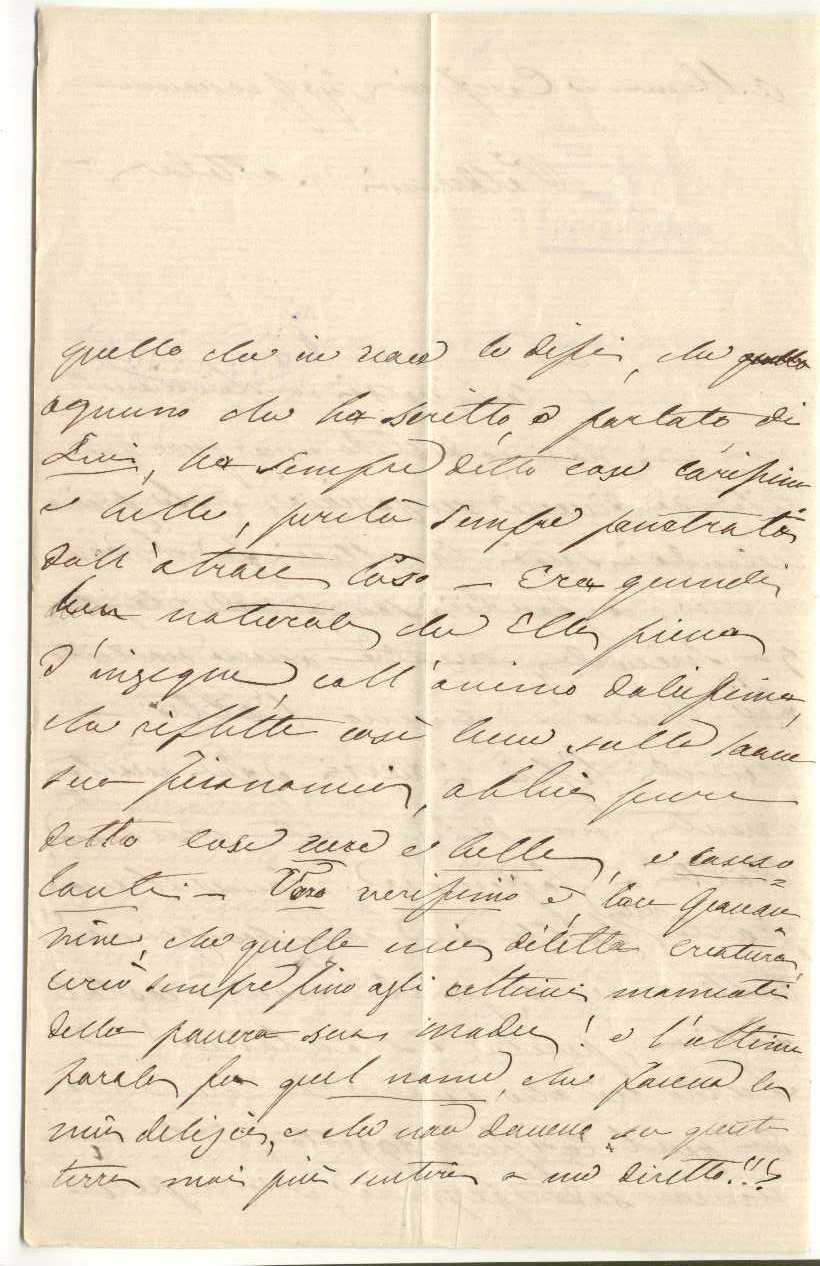 quello che in voce le dissi, che quello
ognuno che ha scritto, o parlato di
Lui, ha sempre detto cose carissime
e belle, perché sempre penetrato
dall'atroce caso — Era quindi
ben naturale che Ella piena
d'ingegno, coll'animo dolcissimo,
che riflette così bene sulla soave
sua fisionomia, abbia pure
detto cose vere e belle, e conso=
lanti — Vero verissimo è, cara Giovan
nina, che quella mia diletta creatura,
cercò sempre fino agli ultimi momenti
della povera sua madre! e l'ultima
parola fu quel nome, che faceva la
mia delizia, e che non dovevo su questa
terra mai più sentire a me diretto!!!